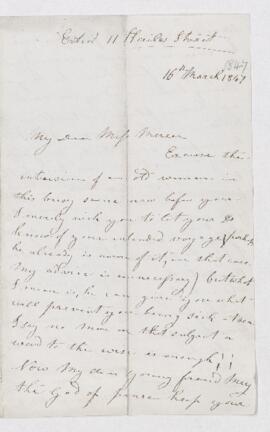 11 Street
1847
16th March 1847
My dear Miss Mercer
Excuse the
intrusion of an old woman in
this busy scene now before you
I merely wish you to let your Dr
know of your intended voyage (perhaps
he already is aware of it, in that case
My advice is unnecessary) but what
I mean is, he can give you what
will prevent you being sick - Now
I say no more on that subject a
word to the wise is enough!!
Now My dear young friend May
the God of peace keep your